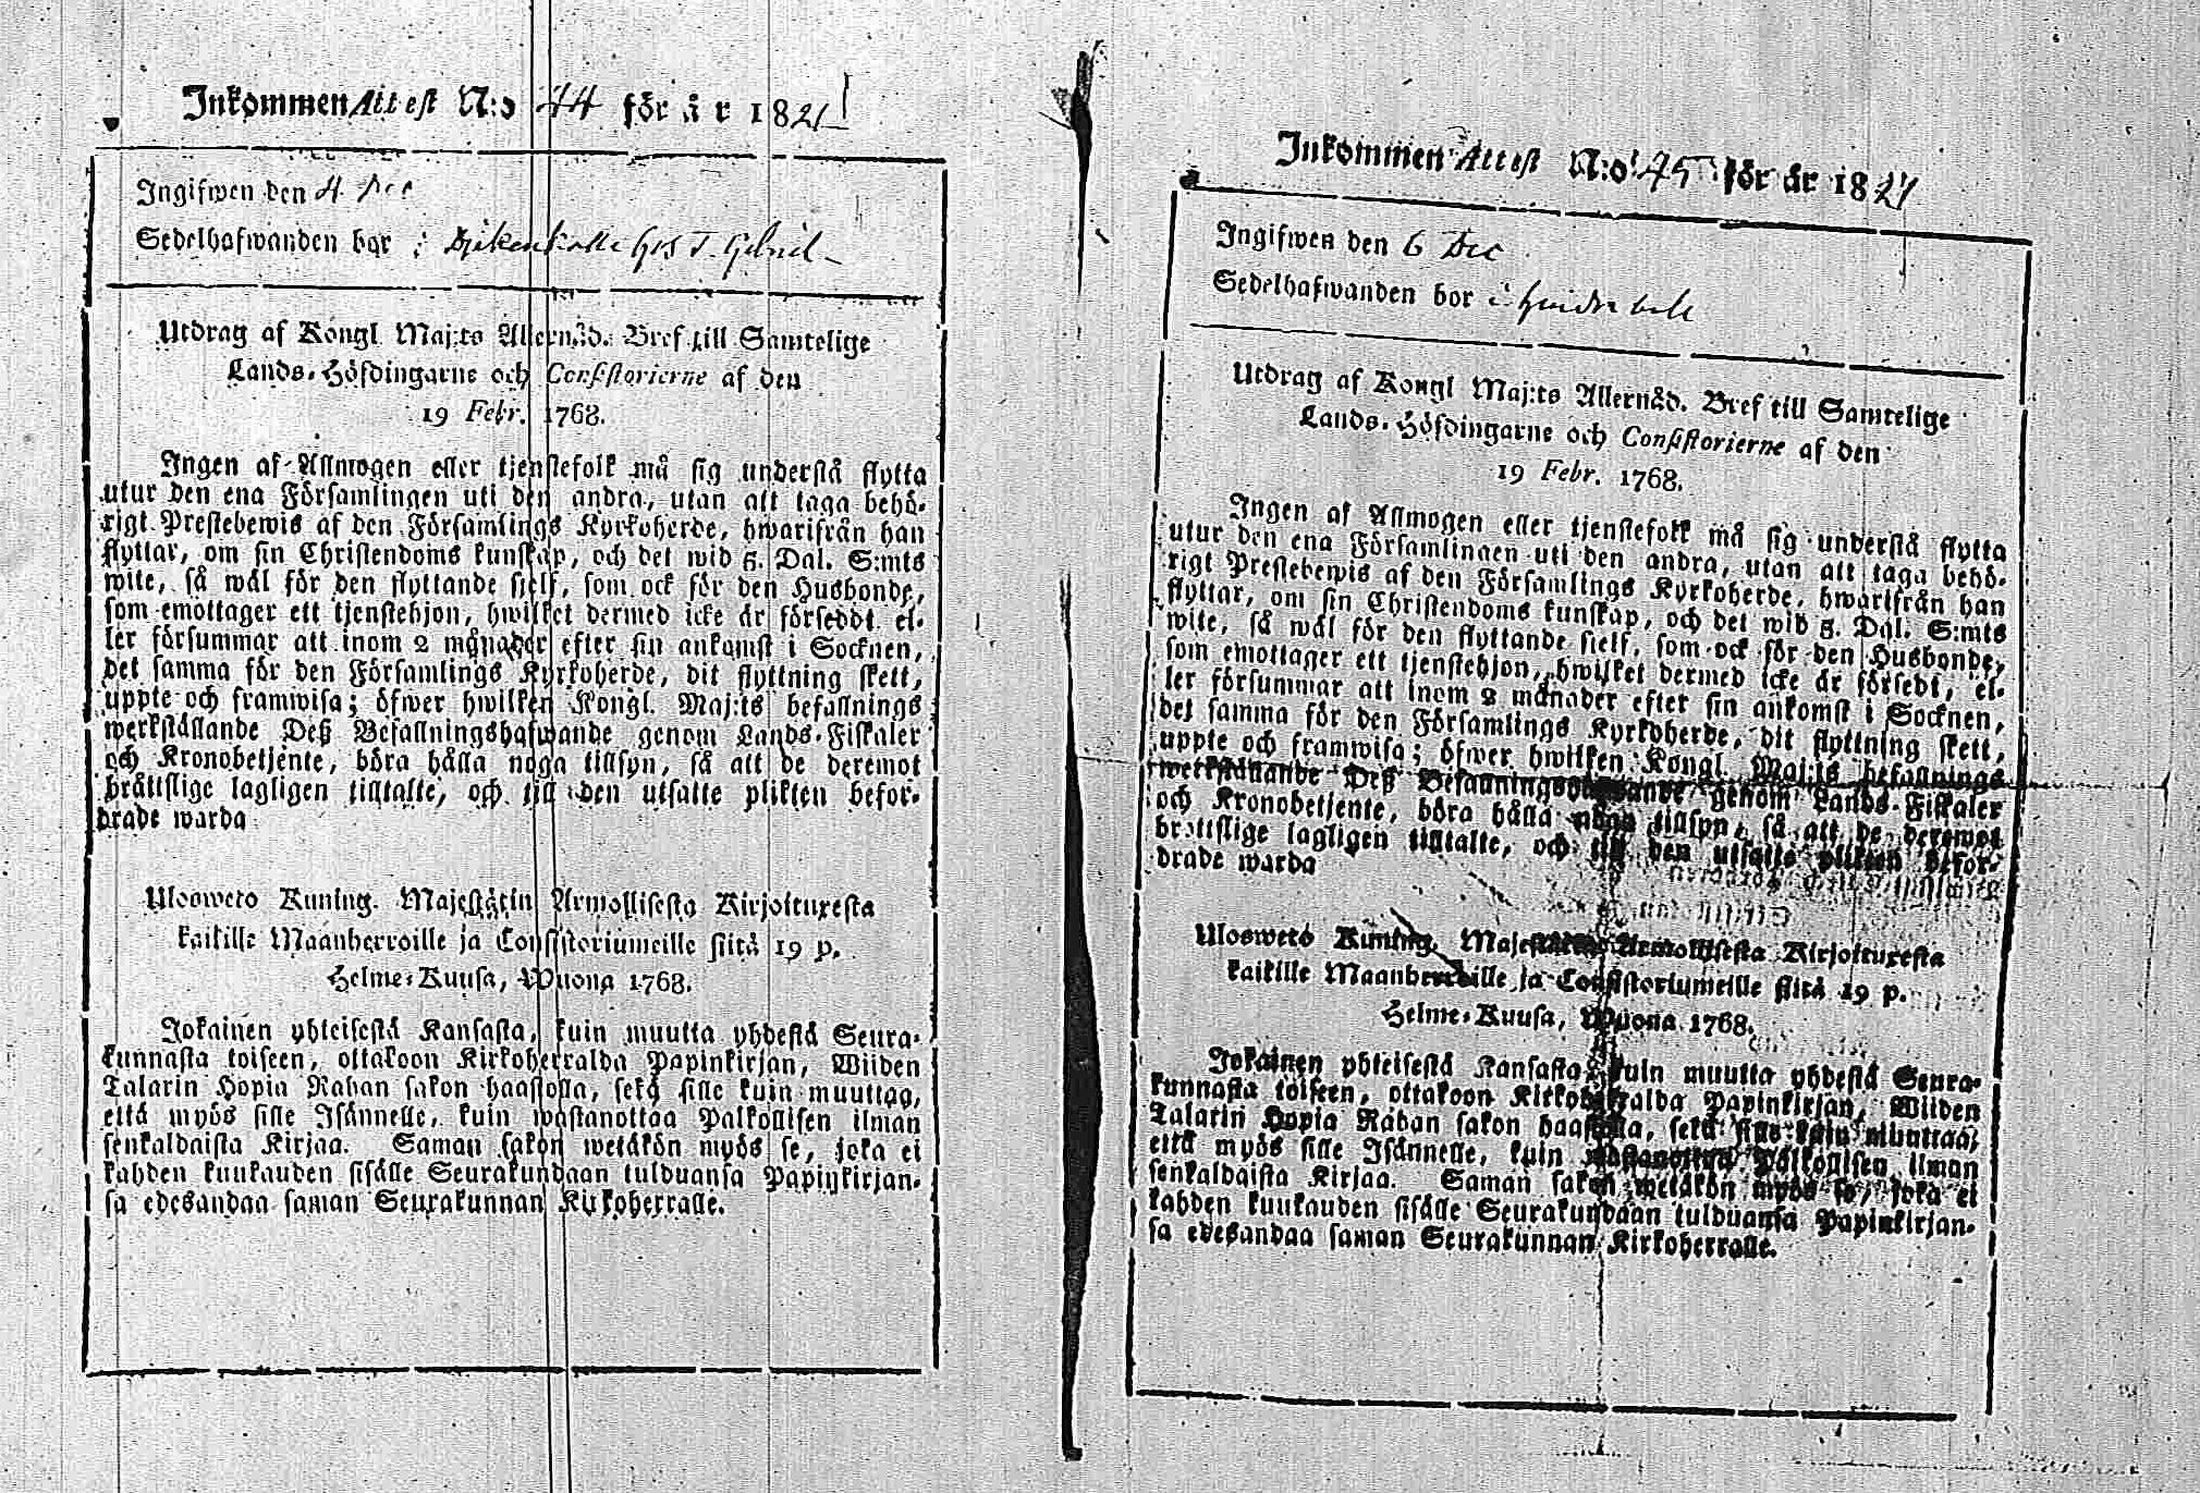 Inkommen Attest N:o 44 för år 1821
Ingifwen den 4 Dec
Sedelhafwanden bor i hos T. Gabriel
Utdrag af Kongl Maj:ts Allernåd. Bref till Samtelige
Lands-Höfdingarne och Consistorierne af den
19 Febr. 1768.
Ingen af Allmogen eller tjenstefolk må sig understå flytta
utur den ena Församlingen uti den andra, utan att taga behö-
rigt Prestebewis af den Församlings Kyrkoherde, hwarifrån han
flyttar, om sin Christendoms kunskap, och det wid 5. Dal. S:mts
wite, så wäl för den flyttande sielf, som ock för den Husbonde,
som emottager ett tjenstehjon, hwilket dermed icke är försedt, el-
ler försummar att inom 2 månader efter sin ankomst i Socknen,
det samma för den Församlings Kyrkoherde, dit flyttning skett,
uppte och framwisa; öfwer hwilken Kongl. Maj:ts befallnings
werkställande Deß Befallningshafwande genom Lands-Fiskaler
och Kronobetjente, böra hålla noga tillsyn, så att de deremot
bråttslige lagligen tilltalte, och till den utsatte plikten befor-
drade warda
Ulosweto Kuning. Majestätin Armollisesta Kirjoituxesta
kaikille Maanherroille ja Consistoriumeille siitä 19 p.
Helme-Kuusa, Wuona 1768.
Jokainen yhteisestä Kansasta, kuin muutta yhdestä Seura-
kunnasta toiseen, ottakoon Kirkoherralda Papinkirjan, Wiiden
Talarin Hopia Rahan sakon haastolla, sekä sille kuin muuttaa,
että myös sille Isännelle, kuin wastanottaa Palkollisen ilman
senkaldaista Kirjaa. Saman sakon wetäkön myös se, joka ei
kahden kuukauden sisälle Seurakundaan tulduansa Papinkirjan-
sa edesandaa saman Seurakunnan Kirkoherralle.
Inkommen Attest N:o 45 för år 1821
Ingifwen den 6 Dec
Sedelhafwanden bor i
Utdrag af Kongl Maj:ts Allernåd. Bref till Samtelige
Lands-Höfdingarne och Consistorierne af den
19 Febr. 1768.
Ingen af Allmogen eller tjenstefolk må sig understå flytta
utur den ena Församlingen uti den andra, utan att taga behö-
rigt Prestebewis af den Församlings Kyrkoherde, hwarifrån han
flyttar, om sin Christendoms kunskap, och det wid 5. Dal. S:mts
wite, så wäl för den flyttande sielf, som ock för den Husbonde,
som emottager ett tjenstehjon, hwilket dermed icke är försedt, el-
ler försummar att inom 2 månader efter sin ankomst i Socknen,
det samma för den Församlings Kyrkoherde, dit flyttning skett,
uppte och framwisa; öfwer hwilken Kongl. Maj:ts befallnings
werkställande Deß Befallningshafwande genom Lands-Fiskaler
och Kronobetjente, böra hålla noga tillsyn, så att de deremot
brottslige lagligen tilltalte, och till den utsatte plikten befor-
drade warda
Ulosweto Kuning. Majestätin Armollisesta Kirjoituxesta
kaikille Maanherroille ja Consistoriumeille siitä 19 p.
Helme-Kuusa, Wuona 1768.
Jokainen yhteisestä Kansasta, kuin muutta yhdestä Seura-
kunnasta toiseen, ottakoon Kirkoherralda Papinkirjan, Wiiden
Talarin Hopia Rahan sakon haastolla, sekä sille kuin muuttaa,
että myös sille Isännelle, kuin wastanottaa Palkollisen ilman
senkaldaista Kirjaa. Saman sakon wetäkön myös se, joka ei
kahden kuukauden sisälle Seurakundaan tulduansa Papinkirjan-
sa edesandaa saman Seurakunnan Kirkoherralle.